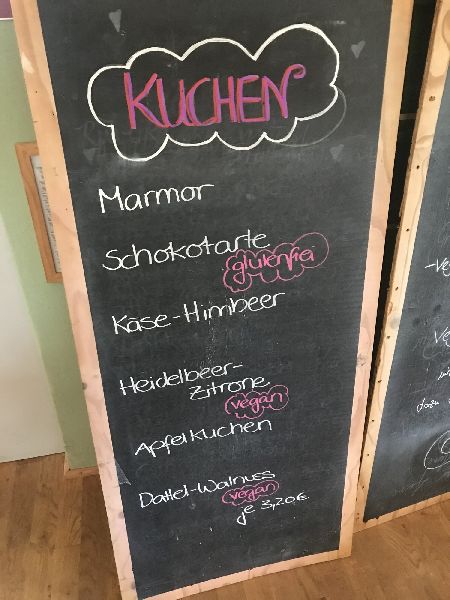 KUCHEN
Marmor
Schokotarte
glutenfrei
Käse-Himbeer
Heidelbeer-
Zitrone
vegan
Apfelkuchen
Dattel-Walnuss
vegan
je 3,20€